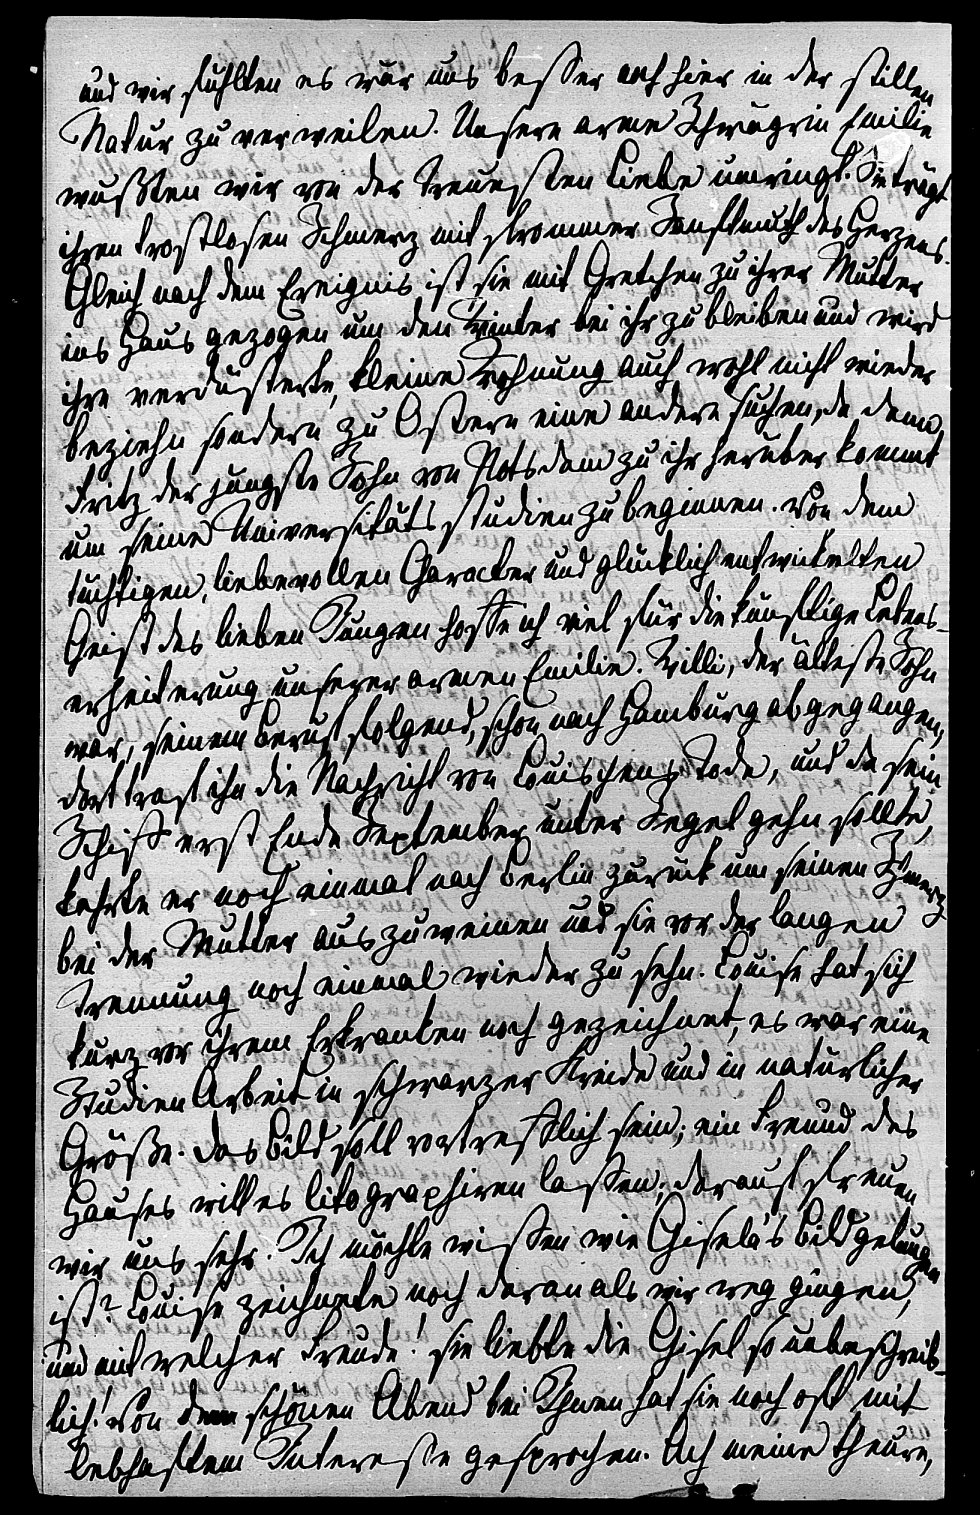 und wir fühlten es war uns besser auch hier in der stillen
Natur zu verweilen. Unsere arme Schwägrin Emilie
wußten wir von der treuesten Liebe umringt. Sie trägt
ihren trostlosen Schmerz mit frommer Sanftmuth des Herzens.
Gleich nach dem Ereignis ist sie mit Gretchen zu ihrer Mutter
ins Haus gezogen um den Winter bei ihr zu bleiben und wird
ihre verdüsterte, kleine Wohnung auch wohl nicht wieder
beziehn sondern zu Ostern eine andere suchen, da dann
Fritz der jüngste Sohn von Potsdam zu ihr herüber kommt
um seine Universitäts studien zu beginnen. Von dem
tüchtigen, liebevollen Character und glücklich entwickelten
Geist des lieben Jungen hoffe ich viel für die künftige Lebens-
erheiterung unserer armen Emilie. Willi, der älteste Sohn
war, seinem Beruf folgend, schon nach Hamburg abgegangen,
dort traf ihn die Nachricht von Louischens Tode, und da sein
Schiff erst Ende September unter Segel gehn sollte,
kehrte er noch einmal nach Berlin zurück um seinen Schmerz
bei der Mutter auszuweinen und sie vor der langen
Trennung noch einmal wieder zu sehn. Louise hat sich
kurz vor ihrem Erkranken noch gezeichnet, es war eine
Studien Arbeit in schwarzer Kreide und in natürlicher
Größe. Das Bild soll vortrefflich sein; ein Freund des
Hauses will es litographiren lassen, darauf freuen
wir uns sehr. Ich möchte wissen wie Gisela's Bild gelungen
ist? Louise zeichnete noch daran als wir weg gingen,
und mit welcher Freude! sie liebte die Gisel so unbeschreib-
lich! Von dem schönen Abend bei Ihnen hat sie noch oft mit
lebhaftem Interesse gesprochen. Ach meine theure,